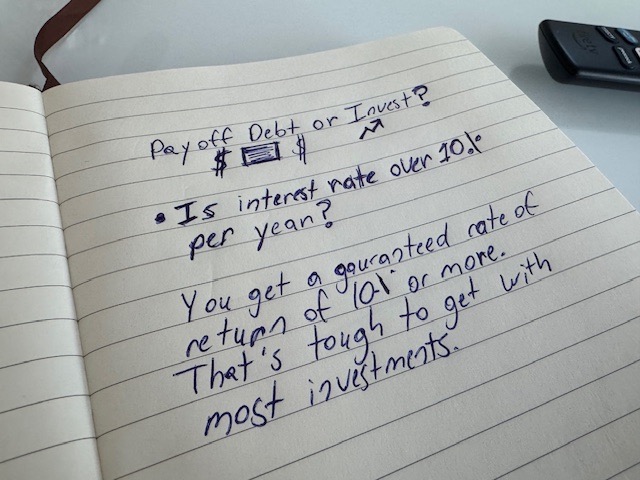 Pay off Debt or Invest?
$ $
• Is interest rate over 10%
per year?
You get a gauranteed rate of
return of 10% or more.
That's tough to get with
most investments.